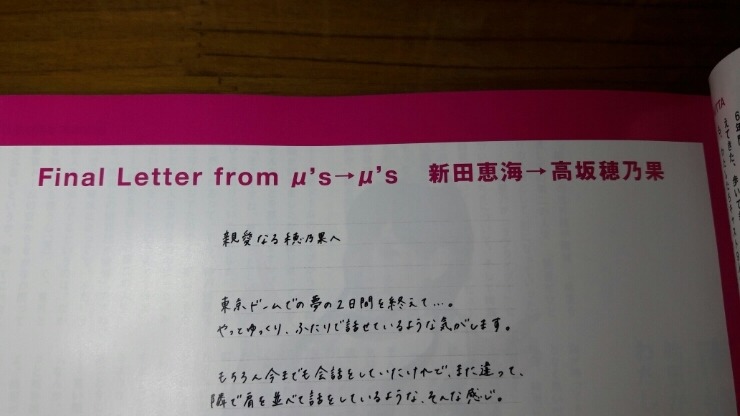 Final Letter from μ's→μ's 新田恵海→高坂穂乃果
親愛なる穂乃果へ
東京ドームでの夢の2日間を終えて…。
やってゆっくり、ふたりで話せているような気がします。
もちろん今までも会話をしていたけれど、また違って、
隣で肩を並べて話をしているような、そんな感じ。